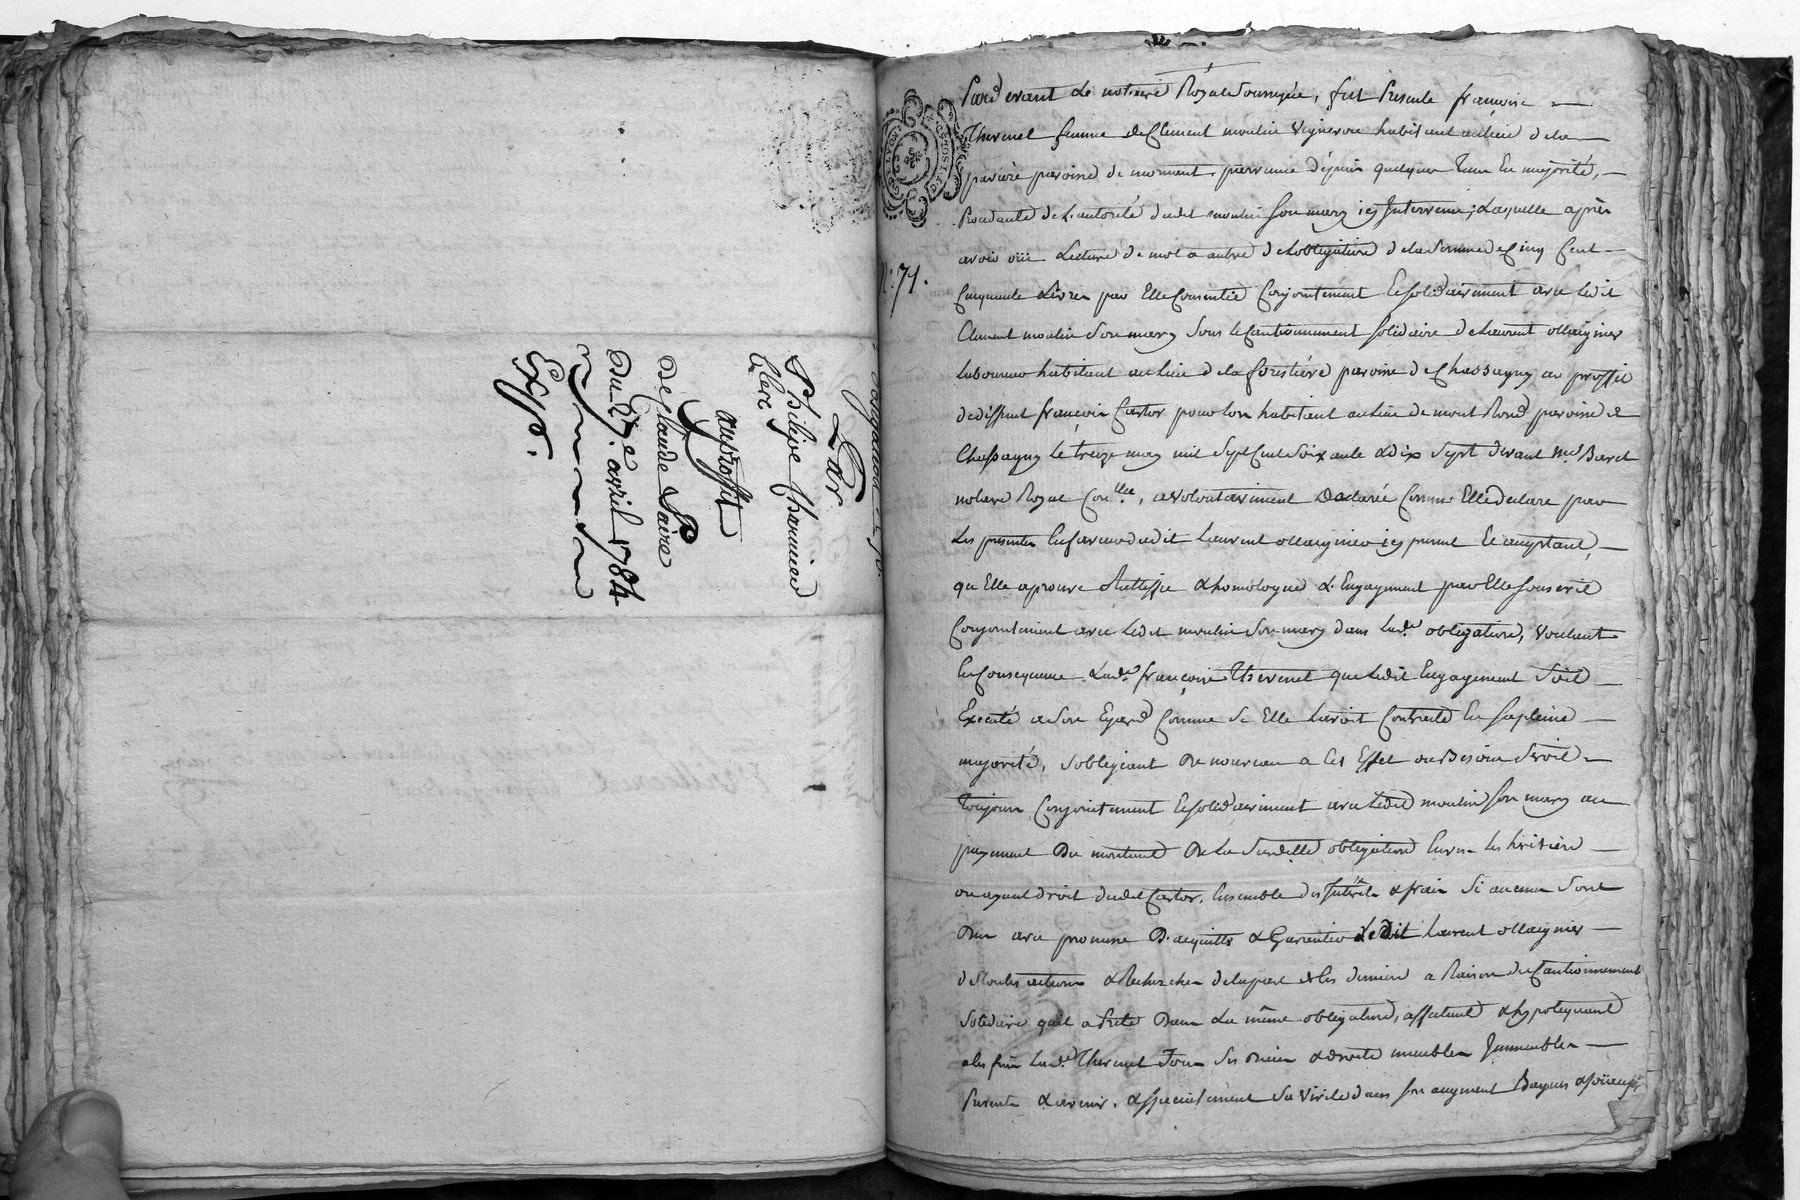 obligation
Par
Philipe Charriere
Clerc
au profit
De Claude Paire
Du 27e avril 1784
Expo.
N. 71.
Pard evant le notaire Royal soussigné, fut presente françoise
Thevenet femme de Clement moulin vigneron habitant au lieu de la
paroisse de mornant, parvenue dépuis quelques tems en majorité,
de L'autorité dudit moulin son mary icy Intervenu; Laquelle après
avoir oui Lecture de mot a autre de L'obligation de la somme de Cinq Cent
Cinquante Livres par Elle Consentie Conjointement Et solidairement avec Ledit
Clement moulin son mary sous le Cautionnement solidaire de Laurent ollagnier
Laboureur habitant au lieu de la forestière paroisse de Chassagny au proffit
de deffunt françois Castor habitant au lieu de mont Rond paroisse de
Chassagny Le treize may mil sept Cent soixante & dix sept devant Me Baret
notaire Royal, a volontairement Declaré Comme Elle declare par
Les presentes En faveur dudit Laurent ollagnier icy present Et acceptant,
qu'Elle aprouve Rattiffie & homologue L'Engagement par Elle souscrit
Conjointement avec Ledit moulin son mary dans Lade obligation, voulant
En Consequence Lade françoise Thevenet que Ledit Engagement soit
Executé a son Egard Comme si Elle L'avoit Contracté En sa pleine
majorité, s'obligeant De nouveau a cet Effet ou Besoin seroit
Toujours Conjointement Et solidairement avec Ledit moulin son mary au
payement Du montant De La susditte obligation Envers Les héritiers
ou ayant droit dudit Castor, Ensemble des Intérets & frais si aucuns sont
Dus avec promesse D'acquitter & Garentir Ledit Laurent ollagnier
de toutes actions & Recherches de la part de ces derniers a Raison du Cautionnement
solidaire qu'il a Preté Dans La même obligation, affectant & hypotequant
a ces fins Lade Thevenet Tous ses Biens & droits meubles Immeubles
Presents & avenir, & specialement sa virile dans son augment Bagues & joüaux